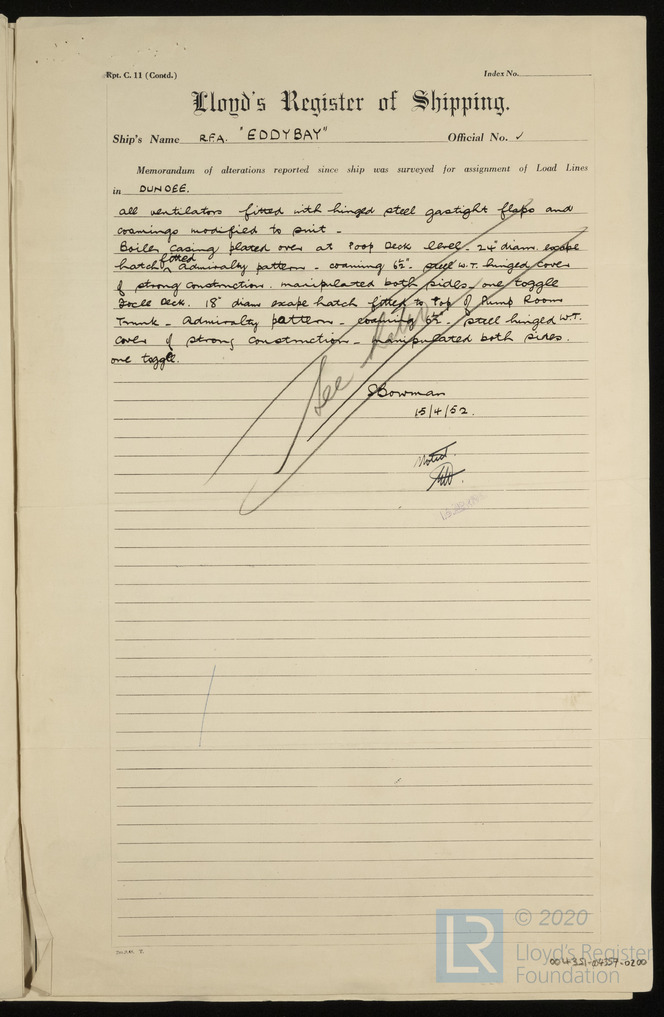 Rpt. C. 11 (Contd.)
Index No.
Lloyd's Register of Shipping.
Ship's Name R.F.A. "EDDYBAY" Official No. ✓
Memorandum of alterations reported since ship was surveyed for assignment of Load Lines
in DUNDEE.
all ventilators fitted with hinged steel gastight flaps and
coamings modified to suit -
Boiler casing plated over at Poop Deck level - 24" diam. escape
hatch fitted, Admiralty pattern - coaming 6½" - steel W.T. hinged cover
of strong construction. manipulated both sides - one toggle
Focle Deck. 18" diam escape hatch fitted to top of Pump Room
Trunk - Admiralty pattern - coaming 6½" - steel hinged W.T.
cover of strong construction - manipulated both sides.
one toggle.
See
SBowman
15/4/52.
Noted.
© 2020
Lloyd's Register
Foundation
004351-004357-0200